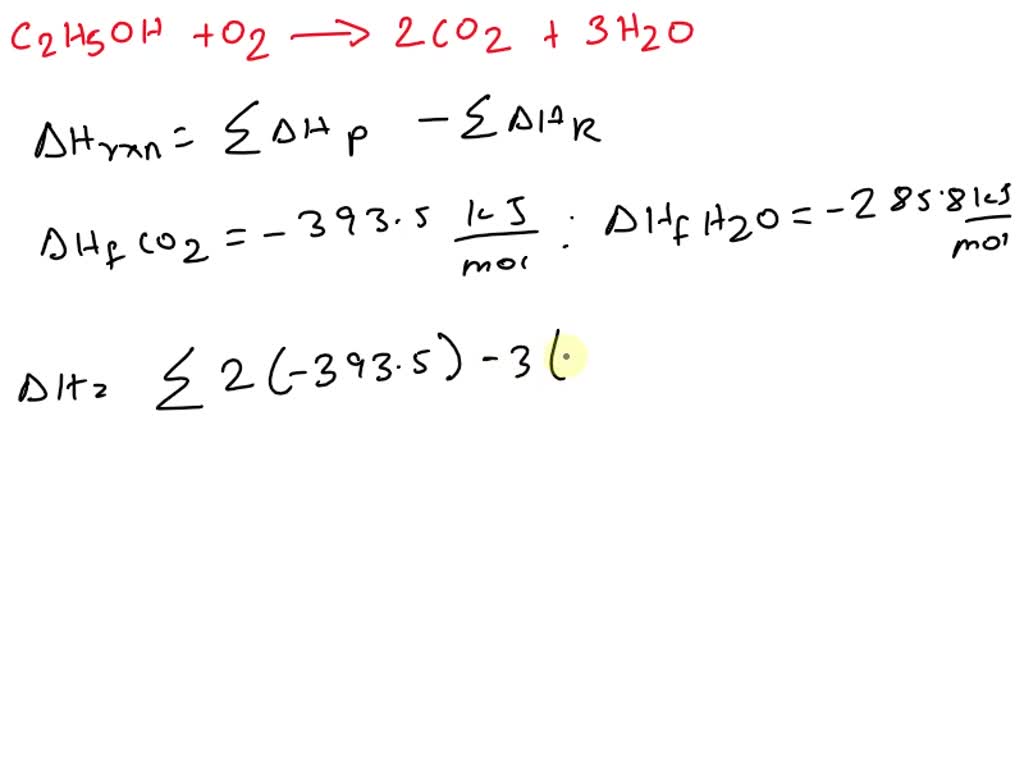 C2H5OH + O2 → 2CO2 + 3H2O
ΔHrxn = Σ ΔH P - Σ ΔH R
ΔHf CO2 = -393.5 kJ/mol : ΔHf H2O = -285.8 kJ/mol
ΔH = Σ 2(-393.5) - 3(